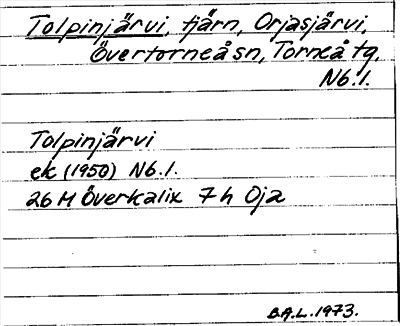 Tolpinjärvi, tjärn, Orjasjärvi,
Övertorneå sn, Torneå tg,
Nb.1.
Tolpinjärvi
ek (1950) Nb.1.
26 M Överkalix 7h Oja
B.A.L. 1973.